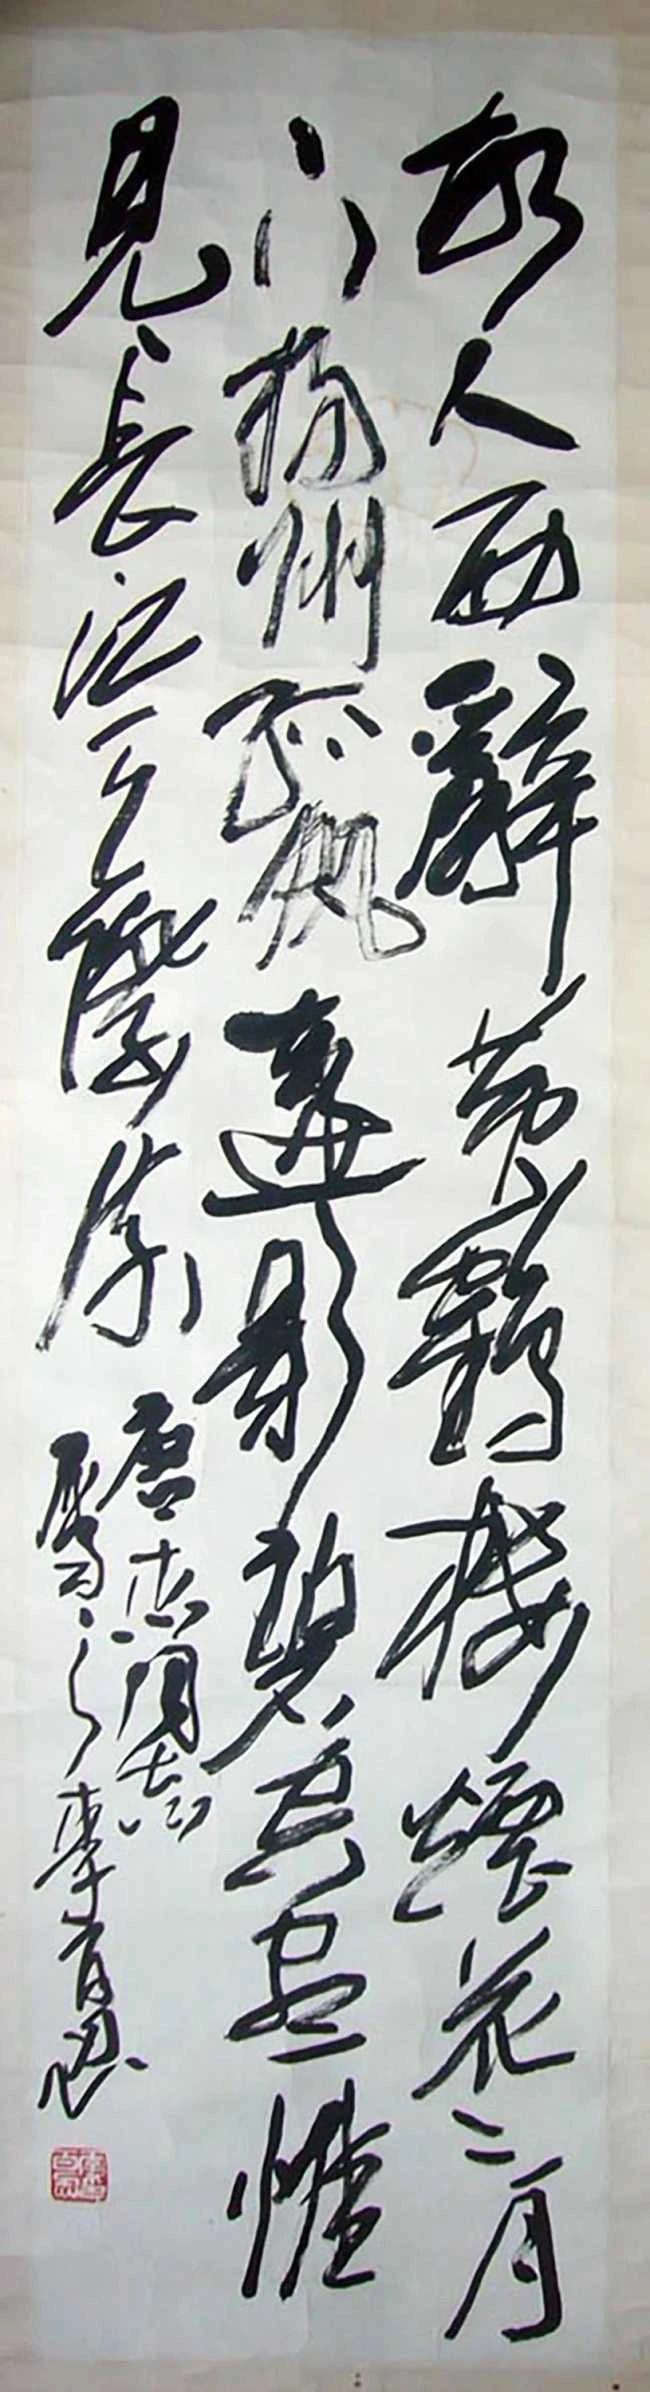 故人西辭黃鶴樓煙花三月
下揚州孤帆遠影碧空盡惟
見長江天際流
唐同志
李百忍